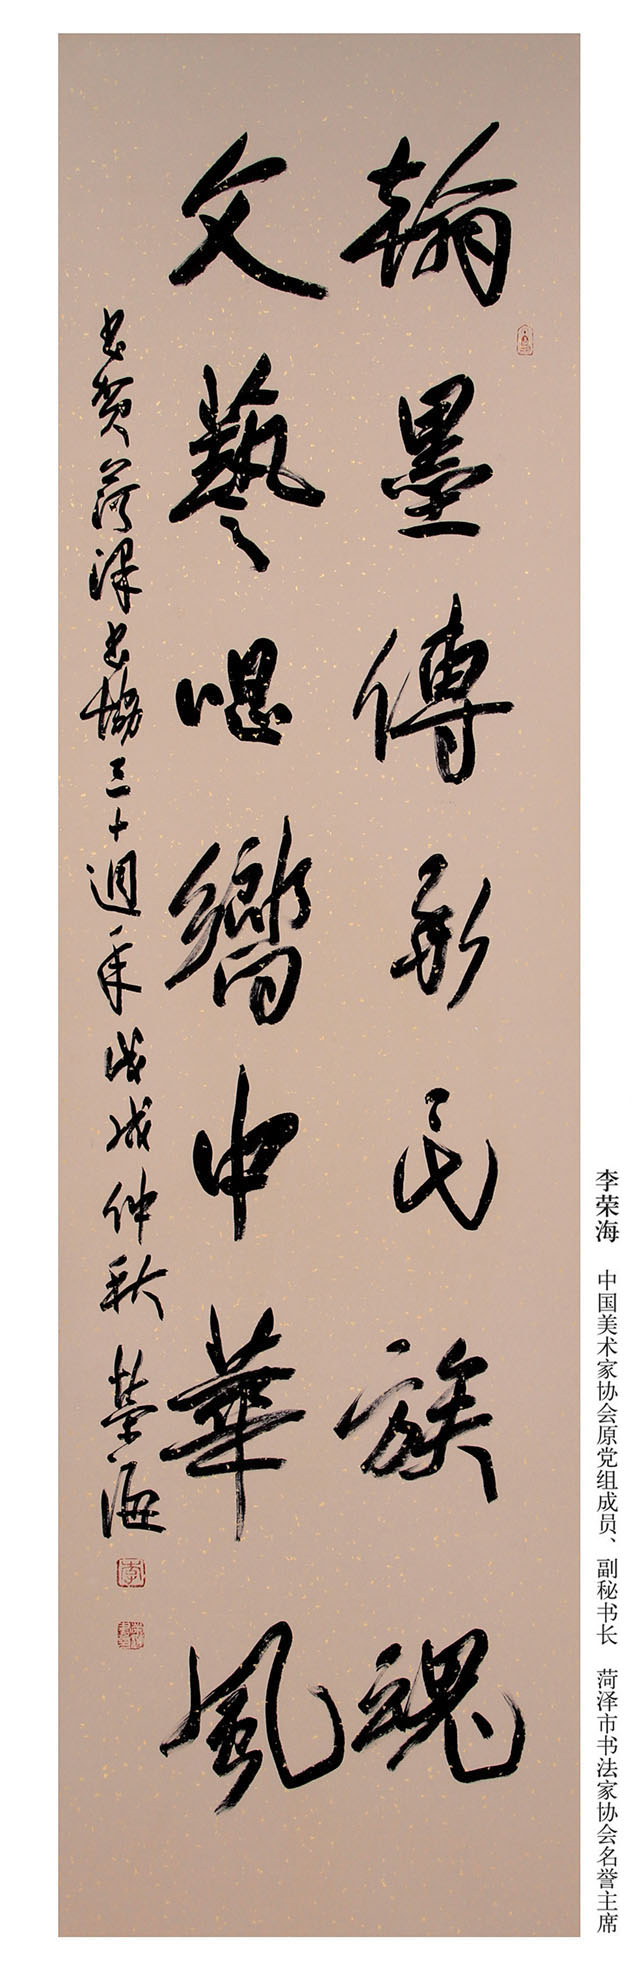 翰墨傳民族魂
文藝唱響中華風
書賀菏澤書協三十週年戊戌仲秋榮海
李
李荣海 中国美术家协会原党组成员、副秘书长 菏泽市书法家协会名誉主席